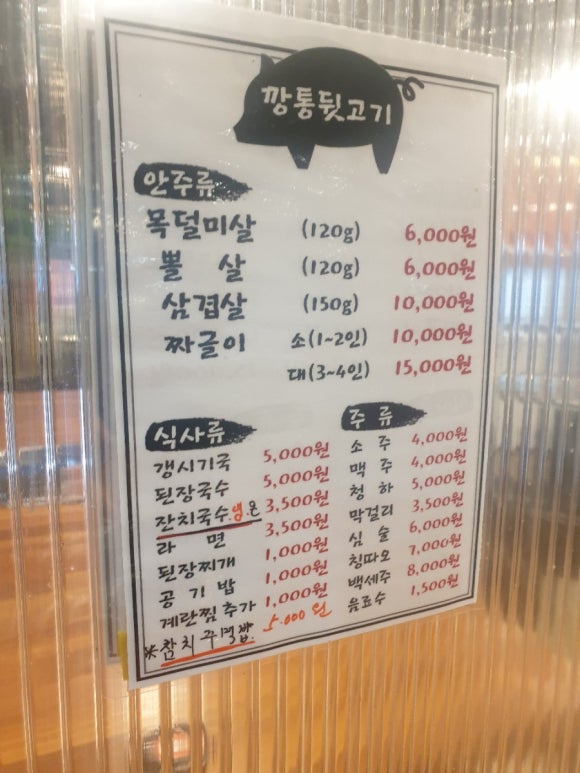 깡통뒷고기
안주류
목덜미살 (120g) 6,000원
뽈 살 (120g) 6,000원
삼겹살 (150g) 10,000원
짜글이 소(1~2인) 10,000원
대(3~4인) 15,000원
식사류
갱시기국 5,000원
된장국수 5,000원
잔치국수.냉.온 3,500원
라 면 3,500원
된장찌개 1,000원
공 기 밥 1,000원
계란찜 추가 1,000원
※참치주먹밥. 5.000원
주 류
소 주 4,000원
맥 주 4,000원
청 하 5,000원
막걸리 3,500원
심 술 6,000원
칭따오 7,000원
백세주 8,000원
음료수 1,500원